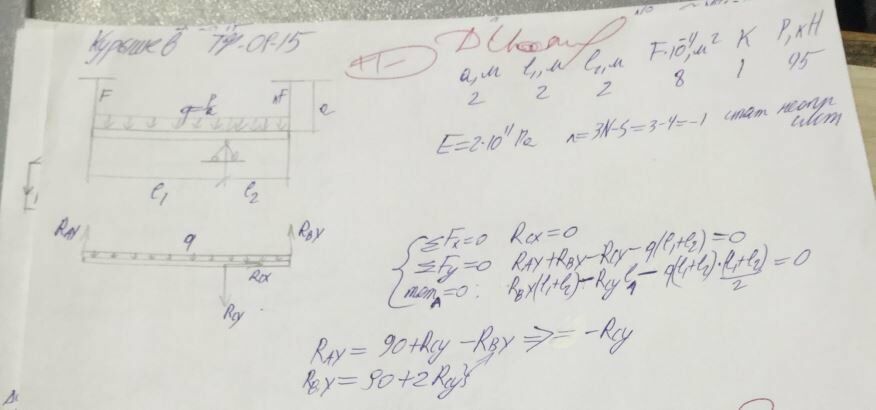 Курышев ТФ-01-15
а,м l₁,м l₂,м F·10⁻⁴,м² K P,кН
2 2 2 8 1 95
E=2·10¹¹Па n=3N-S=3-4=-1 стат неопр
F F a
l₁ l₂
R_AY q R_BY
R_CX
R_CY
ΣFx=0 R_CX=0
ΣFy=0 R_AY+R_BY-R_CY-q(l₁+l₂)=0
mom_A=0: R_BY(l₁+l₂)-R_CY l₁-q(l₁+l₂)·(l₁+l₂)/2=0
R_AY=90+R_CY-R_BY => =-R_CY
R_BY=90+2R_CY